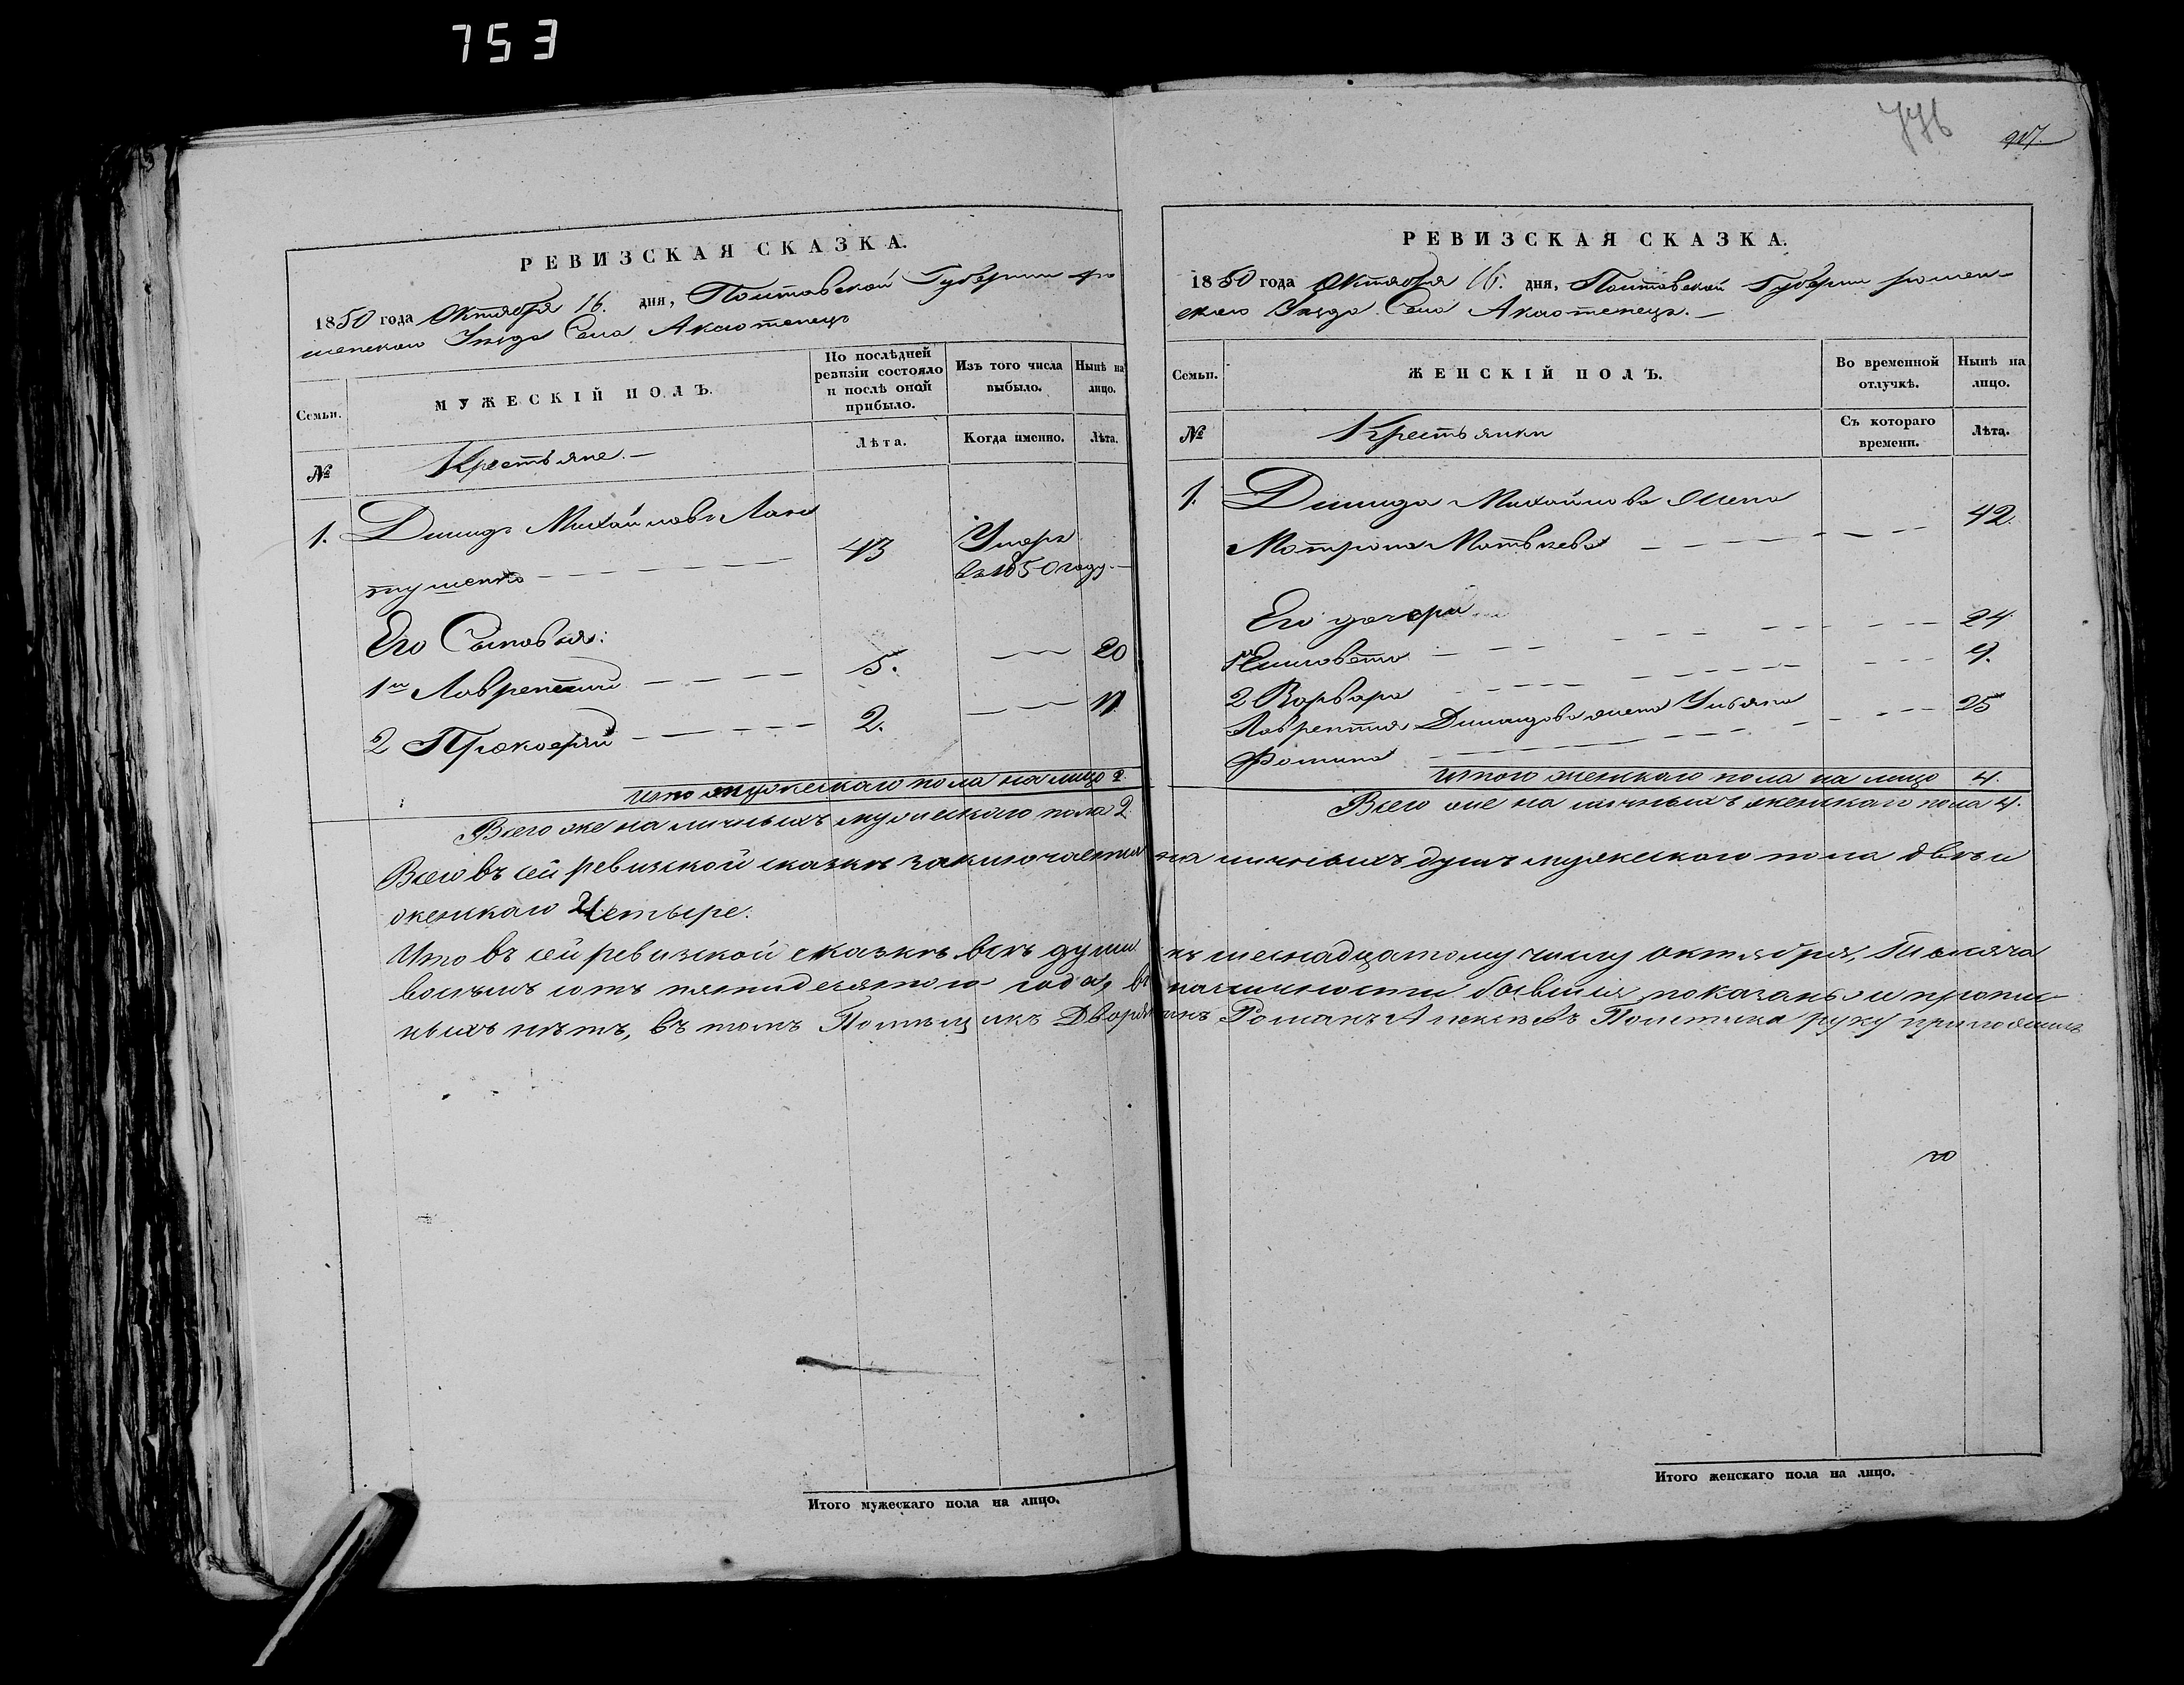 753
776
917.
РЕВИЗСКАЯ СКАЗКА.
1850 года Октября 16. дня, Полтавской Губернии Ро
менского Уезда Села Аксютенецъ
Семьи.
МУЖЕСКІЙ ПОЛЪ.
По послѣдней ревизіи состояло и послѣ оной прибыло.
Изъ того числа выбыло.
Нынѣ на лицо.
№
Крестьяне.
Лѣта.
Когда именно.
Лѣта.
1. Димидъ Михайловъ Лан
тушенко 43 Умеръ
въ 1850 году.
Его Сыновья:
1й Лаврентий 5. 20
2 Прокофий 2. 17
Итого мужескаго пола на лицо 2.
Всего же наличныхъ мужескаго пола 2
РЕВИЗСКАЯ СКАЗКА.
1850 года Октября 16. дня, Полтавской Губернии Ромен-
скаго Уезда Села Аксютенецъ.
Семьи.
ЖЕНСКІЙ ПОЛЪ.
Во временной отлучкѣ.
Нынѣ на лицо.
№
Крестьянки
Съ котораго времени.
Лѣта.
1. Димида Михайлова жена
Мотрона Матвеева 42.
Его дочери
1я Елисавета 24.
2 Варвара 9.
Лаврентия Димидова жена Ульяна
Фомина 25
Итого женскаго пола на лицо 4.
Всего же наличныхъ женскаго пола 4.
Всего въ сей ревизской сказкѣ заключается наличныхъ душъ мужескаго пола двѣ и
женскаго Четыре.
Что въ сей ревизской сказкѣ всѣ души къ шеснадцатому числу октября, тысяча
восемь сотъ пятидесятого года, въ наличности бывшия показаны и пропис-
ныхъ нѣтъ, въ томъ Помѣщикъ Дворянинъ Романъ Алексѣевъ Полетика руку приложилъ
Итого мужескаго пола на лицо.
Итого женскаго пола на лицо.